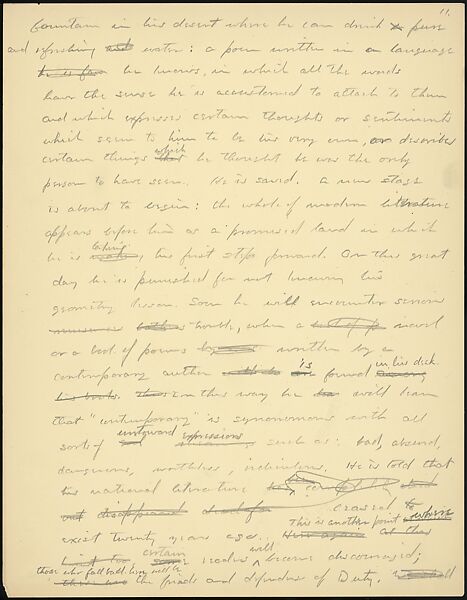 11.
fountain in his desert where he can drink pure
and refreshing water: a poem written in a language
he is far he knows, in which all the words
have the sense he is accustomed to attach to them
and which expresses certain thoughts or sentiments
which seem to him to be his very own, or describes
certain things that which he thought he was the only
person to have seen. He is saved. A new stage
is about to begin: the whole of modern literature
appears before him as a promised land in which
he is taking his first steps forward. On this great
day he is punished for not knowing his
geometry lesson. Soon he will encounter serious
trouble, when a novel
or a book of poems written by a
contemporary author is found in his desk.
his books. In this way he will learn
that "contemporary" is synonomous with all
sorts of untoward expressions such as: bad, absurd,
dangerous, worthless, ridiculous. He is told that
his national literature
and disappeared ceased to
exist twenty years ago. This is another point where
certain readers will become discouraged;
those who fall back here, will be the friends and defenders of Duty.